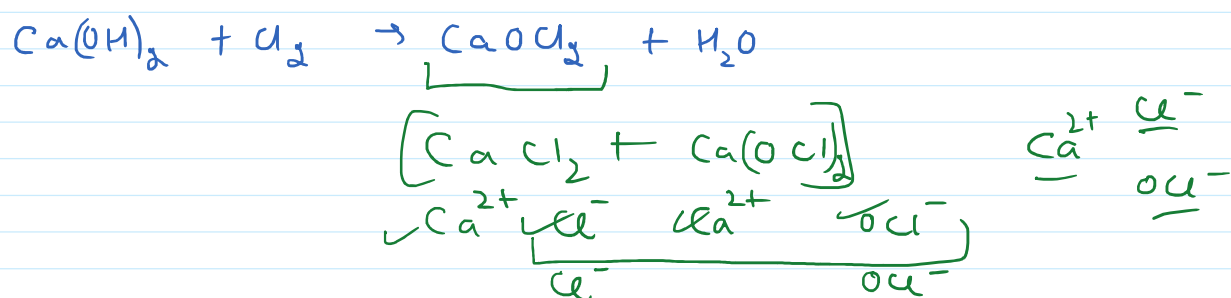 Ca(OH)₂ + Cl₂ → CaOCl₂ + H₂O
[CaCl₂ + Ca(OCl)₂] Ca²⁺ Cl⁻
OCl⁻
Ca²⁺ Cl⁻ Ca²⁺ OCl⁻
Cl⁻ OCl⁻